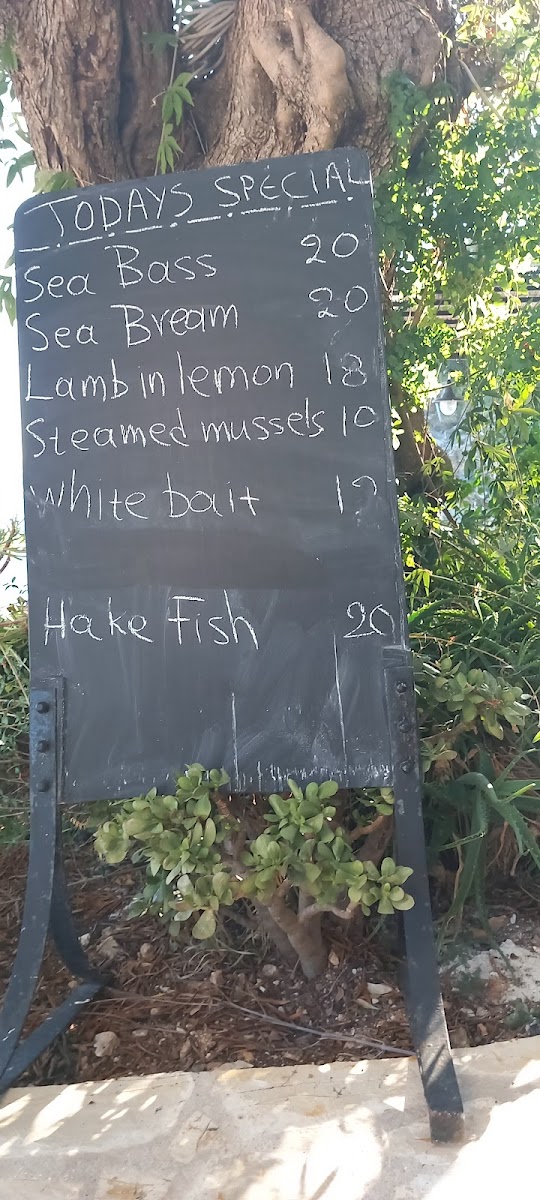 TODAYS SPECIAL
Sea Bass 20
Sea Bream 20
Lamb in lemon 18
Steamed mussels 10
White bait
Hake Fish 20